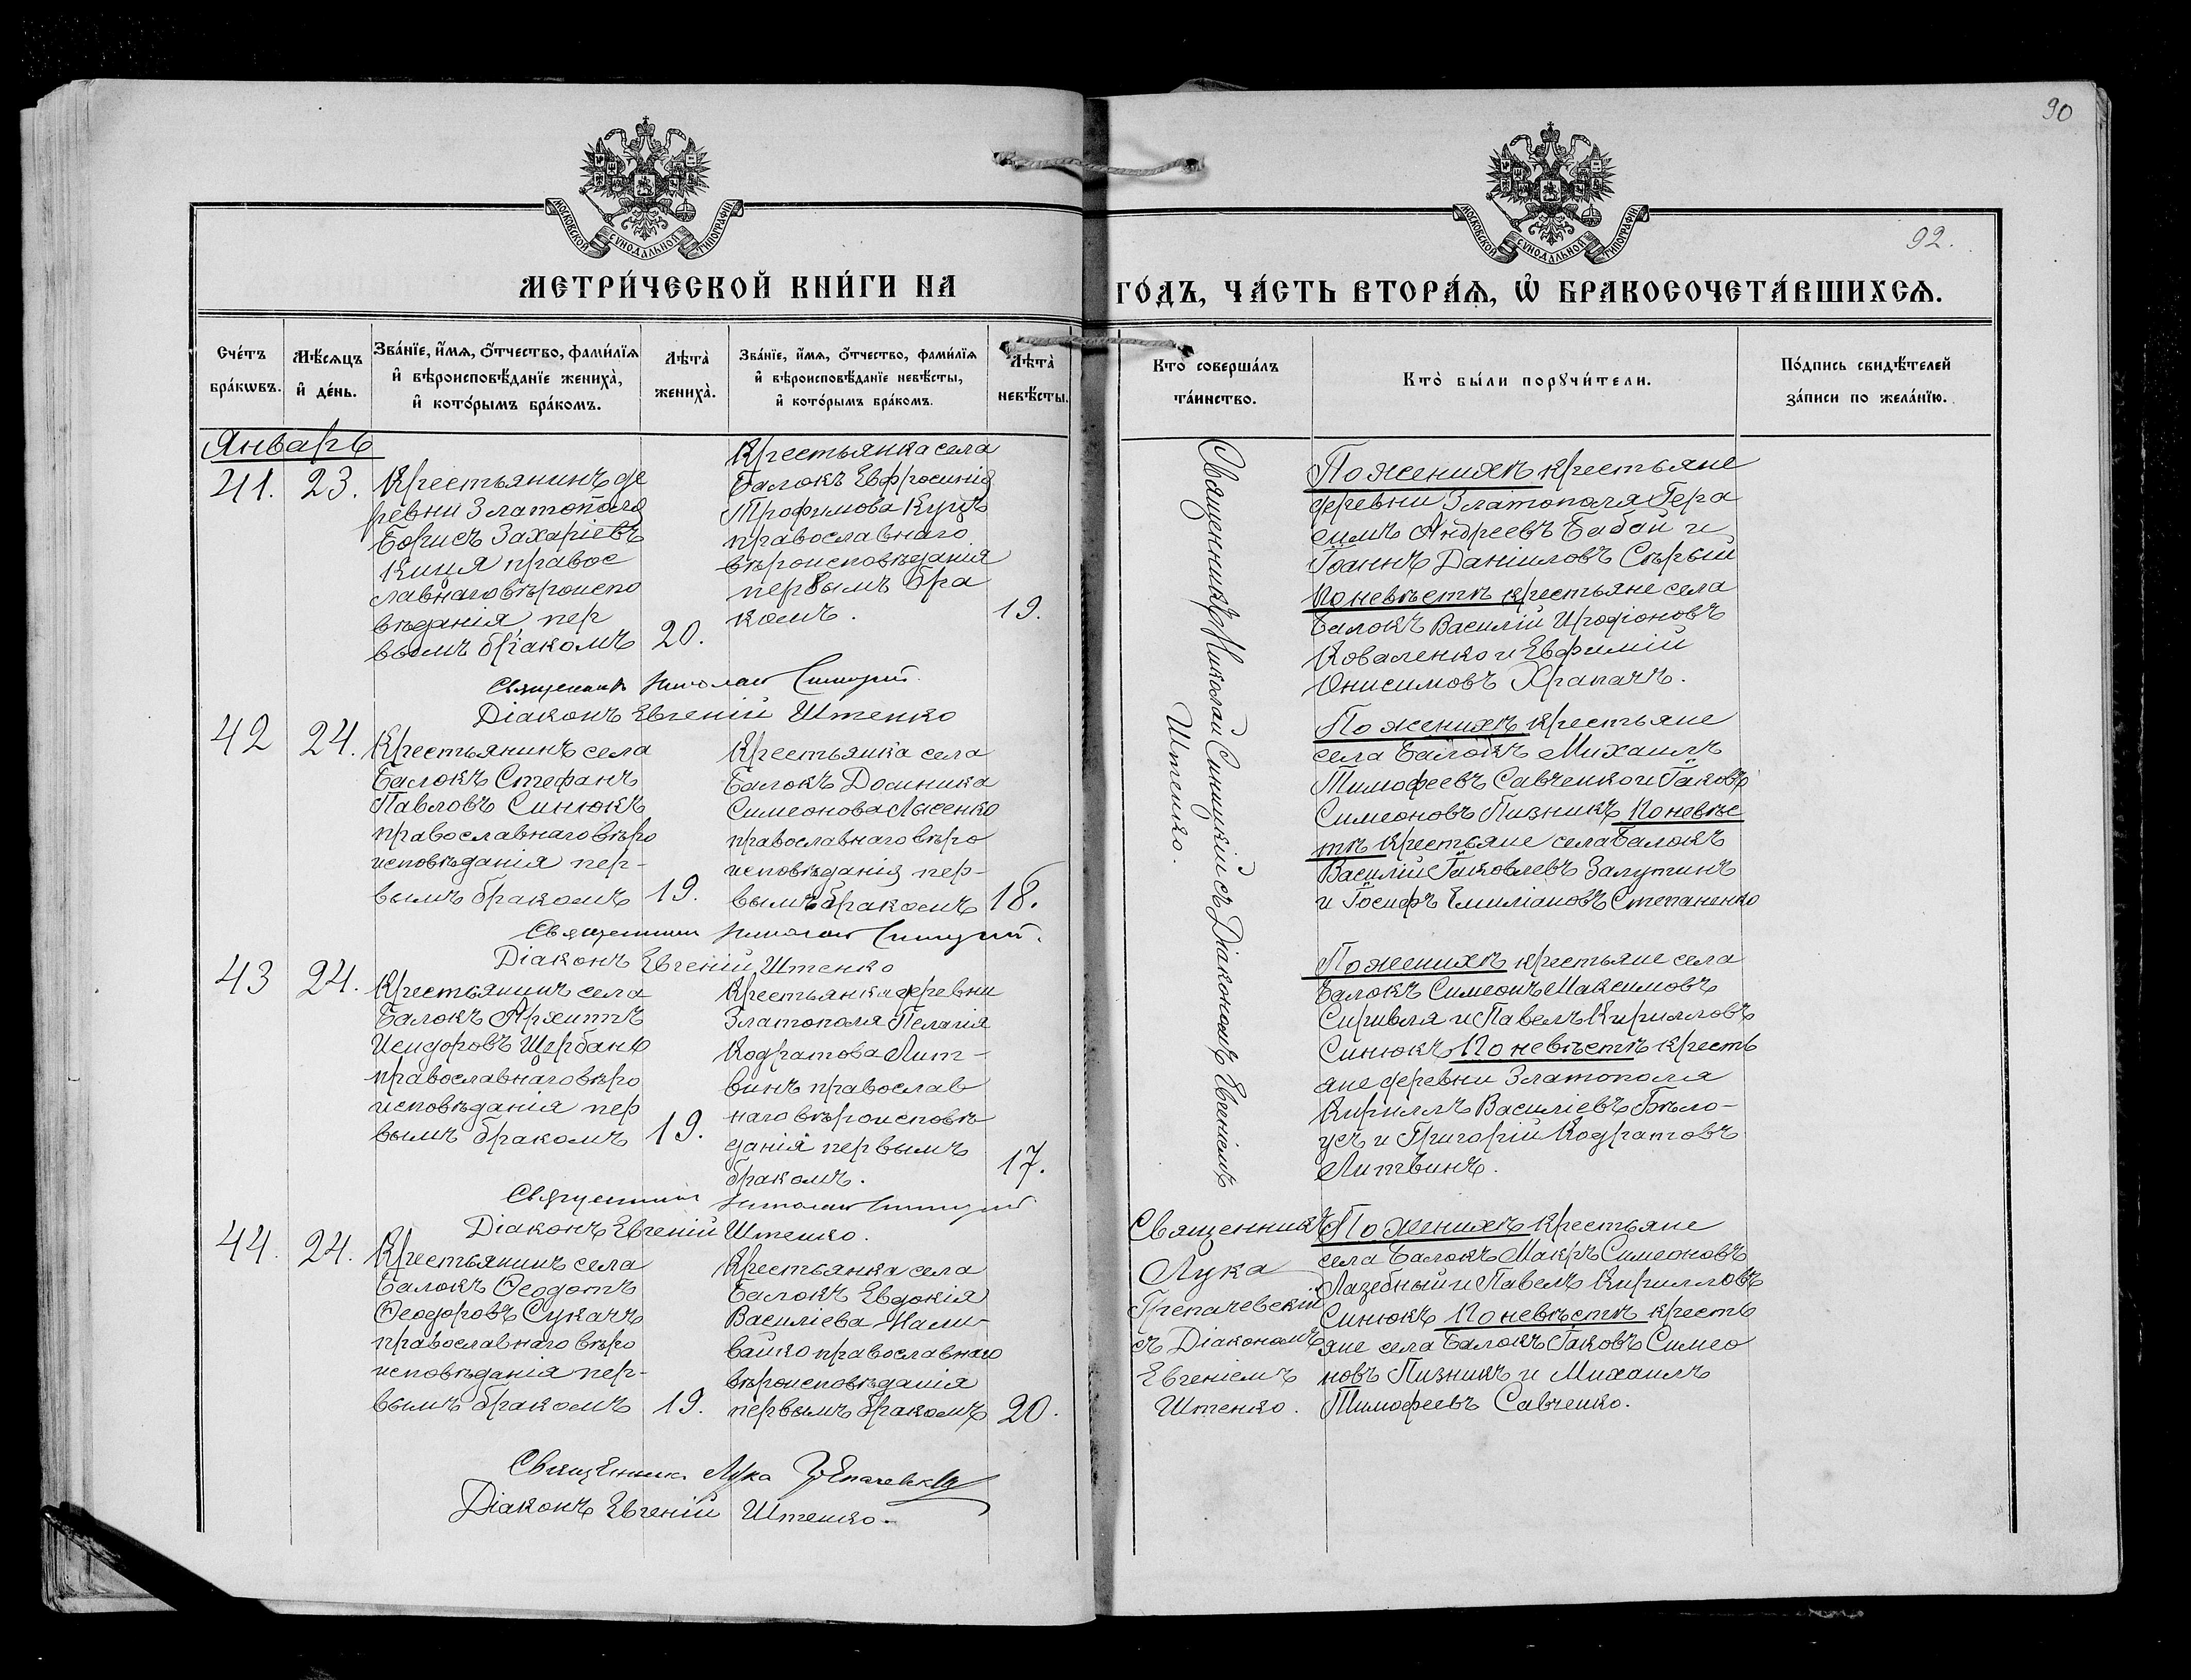 90
МОСКОВСКОЙ СУНОДАЛЬНОЙ ТИПОГРАФІИ
МОСКОВСКОЙ СУНОДАЛЬНОЙ ТИПОГРАФІИ
92.
МЕТРИ́ЧЕСКОЙ КНИ́ГИ НА
ГО́ДЪ, ЧА́СТЬ ВТОРА́Ѧ, Ѽ БРАКОСОЧЕТА́ВШИХСѦ.
Сче́тъ
бра́кѡвъ.
Мѣ́сѧцъ
и҆ де́нь.
Зва́нїе, и҆́мѧ, ѻ҆́тчество, фами́лїѧ
и҆ вѣроисповѣ́данїе жениха̀,
и҆ кото́рымъ бра́комъ.
Лѣта̀
жениха̀.
Зва́нїе, и҆́мѧ, ѻ҆́тчество, фами́лїѧ
и҆ вѣроисповѣ́данїе невѣ́сты,
и҆ кото́рымъ бра́комъ.
Лѣта̀
невѣ́сты.
Кто̀ соверша́лъ
та́инство.
Кто̀ бы́ли порꙋчи́тели.
По́дпись свидѣ́телей
за́писи по жела́нїю.
Январь
41.
23.
Крестьянинъ де
ревни Златополя
Борисъ Захаріевъ
Киця правос
лавнаго вѣроиспо
вѣданія пер
вымъ бракомъ
20.
Крестьянка села
Балокъ Евфросинія
Трофимова Куцъ
православнаго
вѣроисповѣданія
первымъ бра
комъ.
19.
Священникъ Николай Синицкій.
Діаконъ Евгеній Штенко
Священникъ Николай Синицкій съ Діакономъ Евгеніемъ
Штенко.
По женихѣ крестьяне
деревни Златополя Гера
симъ Андреевъ Бабай и
Іоаннъ Даніиловъ Сѣрый
По невѣстѣ крестьяне села
Балокъ Василій Иродіоновъ
Коваленко и Евфимій
Онисимовъ Храпачъ.
42
24.
Крестьянинъ села
Балокъ Стефанъ
Павловъ Синюкъ
православнаго вѣро
исповѣданія пер-
вымъ бракомъ
19.
Крестьянка села
Балокъ Домника
Симеонова Лысенко
православнаго вѣро
исповѣданія пер-
вымъ бракомъ
18.
Священникъ Николай Синицкій.
Діаконъ Евгеній Штенко
По женихѣ крестьяне
села Балокъ Михаилъ
Тимофеевъ Савченко и Іаковъ
Симеоновъ Пизникъ По невѣс
тѣ Крестьяне села Балокъ
Василій Іаковлевъ Залутинъ
и Іосифъ Емиліановъ Степаненко
43
24.
Крестьянинъ села
Балокъ Архиппъ
Исидоровъ Щербань
православнаго вѣро
исповѣданія пер
вымъ бракомъ
19.
Крестьянка деревни
Златополя Пелагія
Кодратова Лит-
винъ православ
наго вѣроисповѣ
данія первымъ
бракомъ.
17.
Священникъ Николай Синицкій
Діаконъ Евгеній Штенко.
По женихѣ крестьяне села
Балокъ Симеонъ Максимовъ
и Павелъ Кирилловъ
Синюкъ По невѣстѣ кресть
яне деревни Златополя
Кириллъ Василіевъ Бѣло-
усъ и Григорій Кодратовъ
Литвинъ.
44.
24.
Крестьянинъ села
Балокъ Ѳеодотъ
Ѳеодоровъ Сукачъ
православнаго вѣро
исповѣданія пер-
вымъ бракомъ
19.
Крестьянка села
Балокъ Евдокія
Василіева Нали-
вайко православнаго
вѣроисповѣданія
первымъ бракомъ
20.
Священникъ
Лука
Грепачевскій
съ Діакономъ
Евгеніемъ
Штенко.
По женихѣ Крестьяне
села Балокъ Макръ Симеоновъ
Лазебный и Павелъ Кирилловъ
Синюкъ По невѣстѣ кресть
яне села Балокъ Іаковъ Симео
новъ Пизникъ и Михаилъ
Тимофеевъ Савченко.
Священникъ Лука Грепачевскій
Діаконъ Евгеній Штенко.